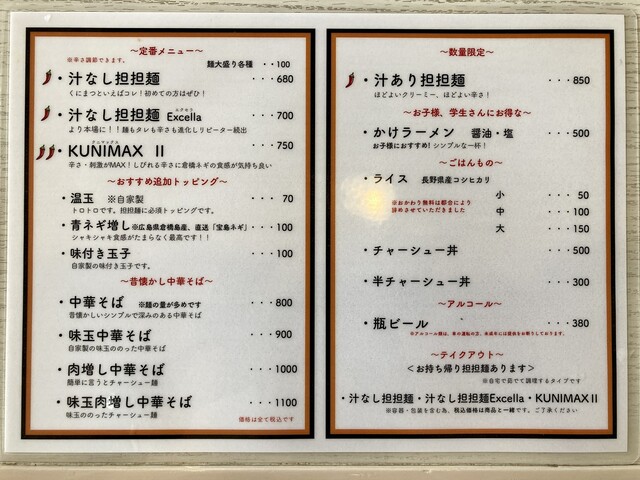 ～定番メニュー～
※辛さ調節できます。
麺大盛り各種 ・・100
・汁なし担担麺 ・・・680
くにまつといえばコレ！初めての方はぜひ！
エクセラ
・汁なし担担麺 Excella ・・・700
より本場に！！麺もタレも辛さも進化しリピーター続出
クニマックス
・KUNIMAX Ⅱ ・・・750
辛さ・刺激がMAX！しびれる辛さに倉橋ネギの食感が気持ち良い
～おすすめ追加トッピング～
・温玉 ※自家製 ・・・70
トロトロです。担担麺に必須トッピングです。
・青ネギ増し ※広島県倉橋島産、直送「宝島ネギ」・・・100
シャキシャキ食感がたまらなく最高です！！
・味付き玉子 ・・・100
自家製の味付き玉子です。
～昔懐かし中華そば～
・中華そば ※麺の量が多めです ・・・800
昔懐かしいシンプルで深みのある中華そば
・味玉中華そば ・・・900
自家製の味玉ののった中華そば
・肉増し中華そば ・・・1000
簡単に言うとチャーシュー麺
・味玉肉増し中華そば ・・・1100
味玉ののったチャーシュー麺
価格は全て税込です
～数量限定～
・汁あり担担麺 ・・・850
ほどよいクリーミー、ほどよい辛さ！
～お子様、学生さんにお得な～
・かけラーメン 醤油・塩 ・・・500
お子様におすすめ！シンプルな一杯！
～ごはんもの～
・ライス 長野県産コシヒカリ
小 ・・・50
※おかわり無料は都合により
諦めさせていただきました
中 ・・・100
大 ・・・150
・チャーシュー丼 ・・・500
・半チャーシュー丼 ・・・300
～アルコール～
・瓶ビール ・・・380
※アルコール類は、車の運転の方、未成年には提供をお断りしております。
～テイクアウト～
＜お持ち帰り担担麺あります＞
※自宅で茹でて調理するタイプです
・汁なし担担麺・汁なし担担麺Excella・KUNIMAXⅡ
※容器・包装を含む為、税込価格は商品と一緒です。ご了承ください